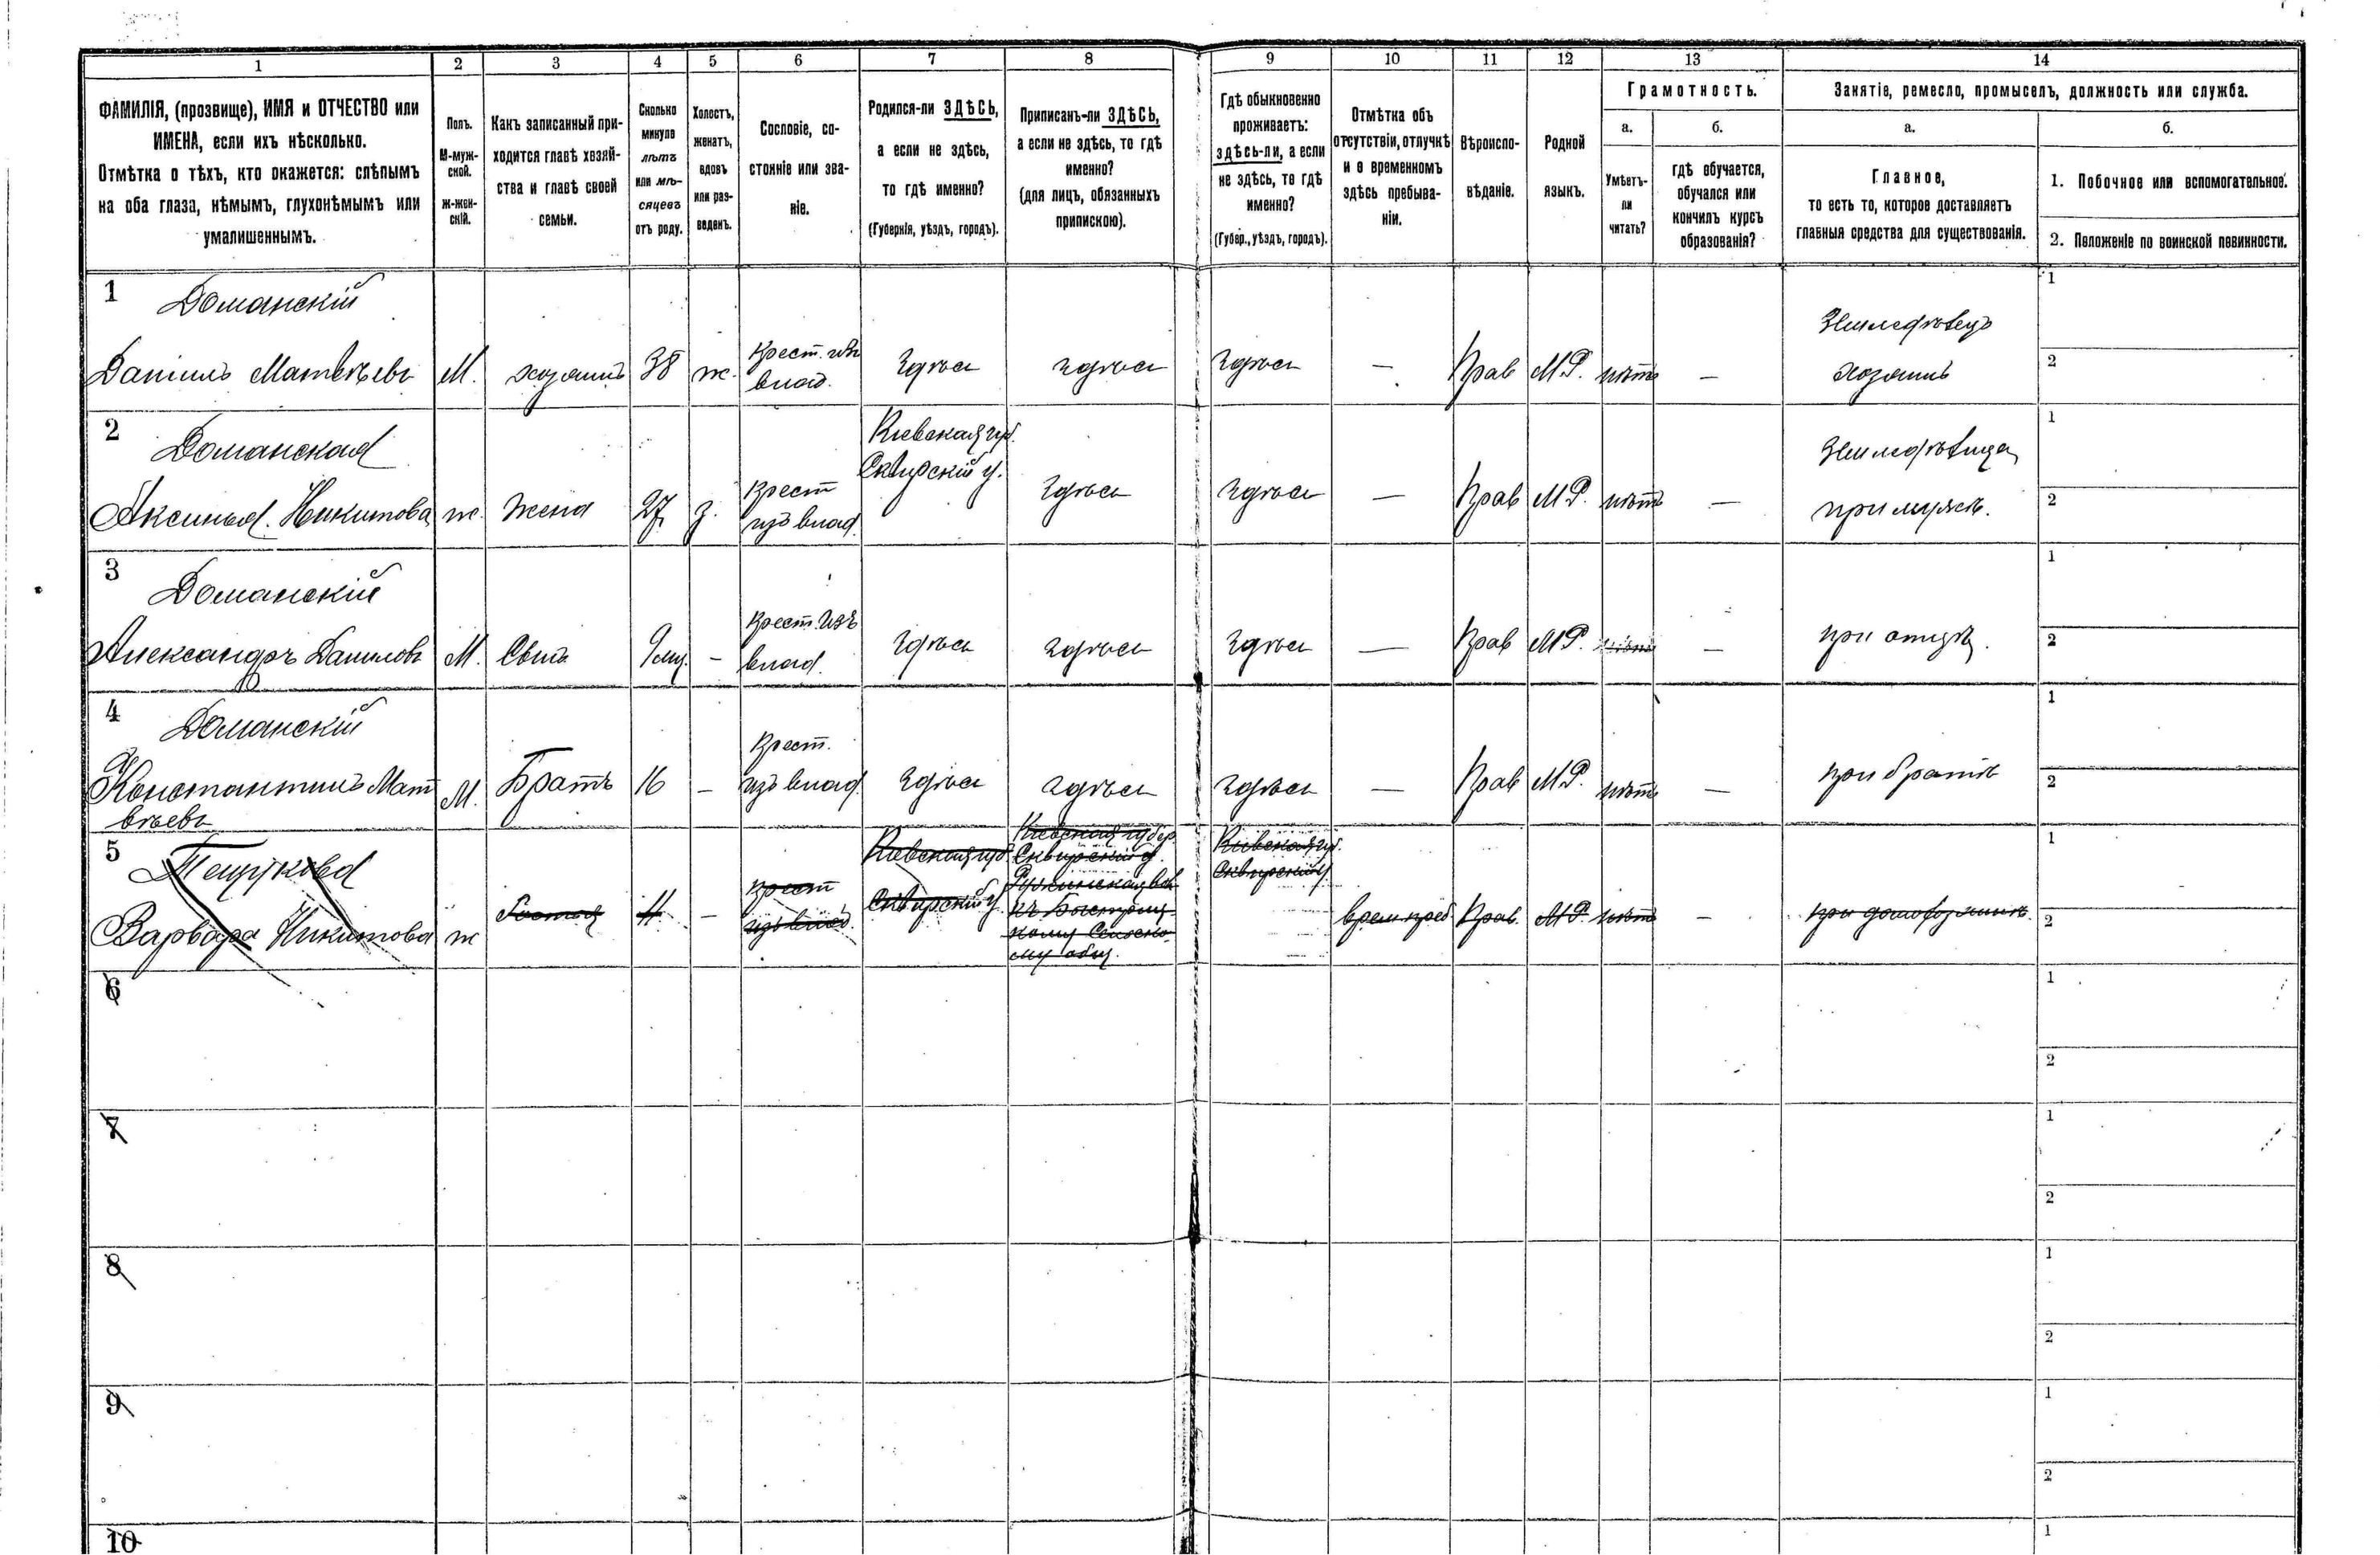 1 2 3 4 5 6 7 8 9 10 11 12 13 14
ФАМИЛІЯ, (прозвище), ИМЯ и ОТЧЕСТВО или
ИМЕНА, если ихъ нѣсколько.
Отмѣтка о тѣхъ, кто окажется: слѣпымъ
на оба глаза, нѣмымъ, глухонѣмымъ или
умалишеннымъ.
Полъ.
М-муж-
ской.
ж-жен-
скій.
Какъ записанный при-
ходится главѣ хозяй-
ства и главѣ своей
семьи.
Сколько
минуло
лѣтъ
или мѣ-
сяцевъ
отъ роду.
Холостъ,
женатъ,
вдовъ
или раз-
веденъ.
Сословіе, со-
стояніе или зва-
ніе.
Родился-ли ЗДѢСЬ,
а если не здѣсь,
то гдѣ именно?
(Губернія, уѣздъ, городъ).
Приписанъ-ли ЗДѢСЬ,
а если не здѣсь, то гдѣ
именно?
(для лицъ, обязанныхъ
припискою).
Гдѣ обыкновенно
проживаетъ:
здѣсь-ли, а если
не здѣсь, то гдѣ
именно?
(Губер., уѣздъ, городъ).
Отмѣтка объ
отсутствіи, отлучкѣ
и о временномъ
здѣсь пребыва-
ніи.
Вѣроиспо-
вѣданіе.
Родной
языкъ.
Грамотность.
а.
Умѣетъ-
ли
читать?
б.
гдѣ обучается,
обучался или
кончилъ курсъ
образованія?
Занятіе, ремесло, промыселъ, должность или служба.
а.
Главное,
то есть то, которое доставляетъ
главныя средства для существованія.
б.
1. Побочное или вспомогательное.
2. Положеніе по воинской повинности.
1
Доманскій
Даніилъ Матвѣевъ
М.
хозяинъ
38
ж.
Крест. изъ
влад.
здѣсь
здѣсь
здѣсь
—
Прав
М.Р.
нѣтъ
—
Земледѣлецъ
хозяинъ
1
2
2
Доманская
Аксинья Никитова
ж.
жена
27
з.
Крест
изъ влад.
Кіевская губ.
Сквирскій у.
здѣсь
здѣсь
—
Прав
М.Р.
нѣтъ
—
Земледѣлица
при мужѣ.
1
2
3
Доманскій
Александръ Даниловъ
М.
Сынъ
9 мц.
—
Крест. изъ
влад.
здѣсь
здѣсь
здѣсь
—
Прав
М.Р.
нѣтъ
—
при отцѣ.
1
2
4
Доманскій
Константинъ Мат
вѣевъ
М.
Братъ
16
—
Крест.
изъ влад.
здѣсь
здѣсь
здѣсь
—
Прав
М.Р.
нѣтъ
—
при братѣ
1
2
5
Варвара Никитова
ж
Гостья
11
—
крест
изъ влад.
Кіевская губ
Сквирскій у.
Кіевская губер
Сквирскій у.
Кіевская гу.
Сквирскій у.
врем. преб.
Прав.
М.Р.
нѣтъ
—
1
2
6
1
2
7
1
2
8
1
2
9
1
2
10
1